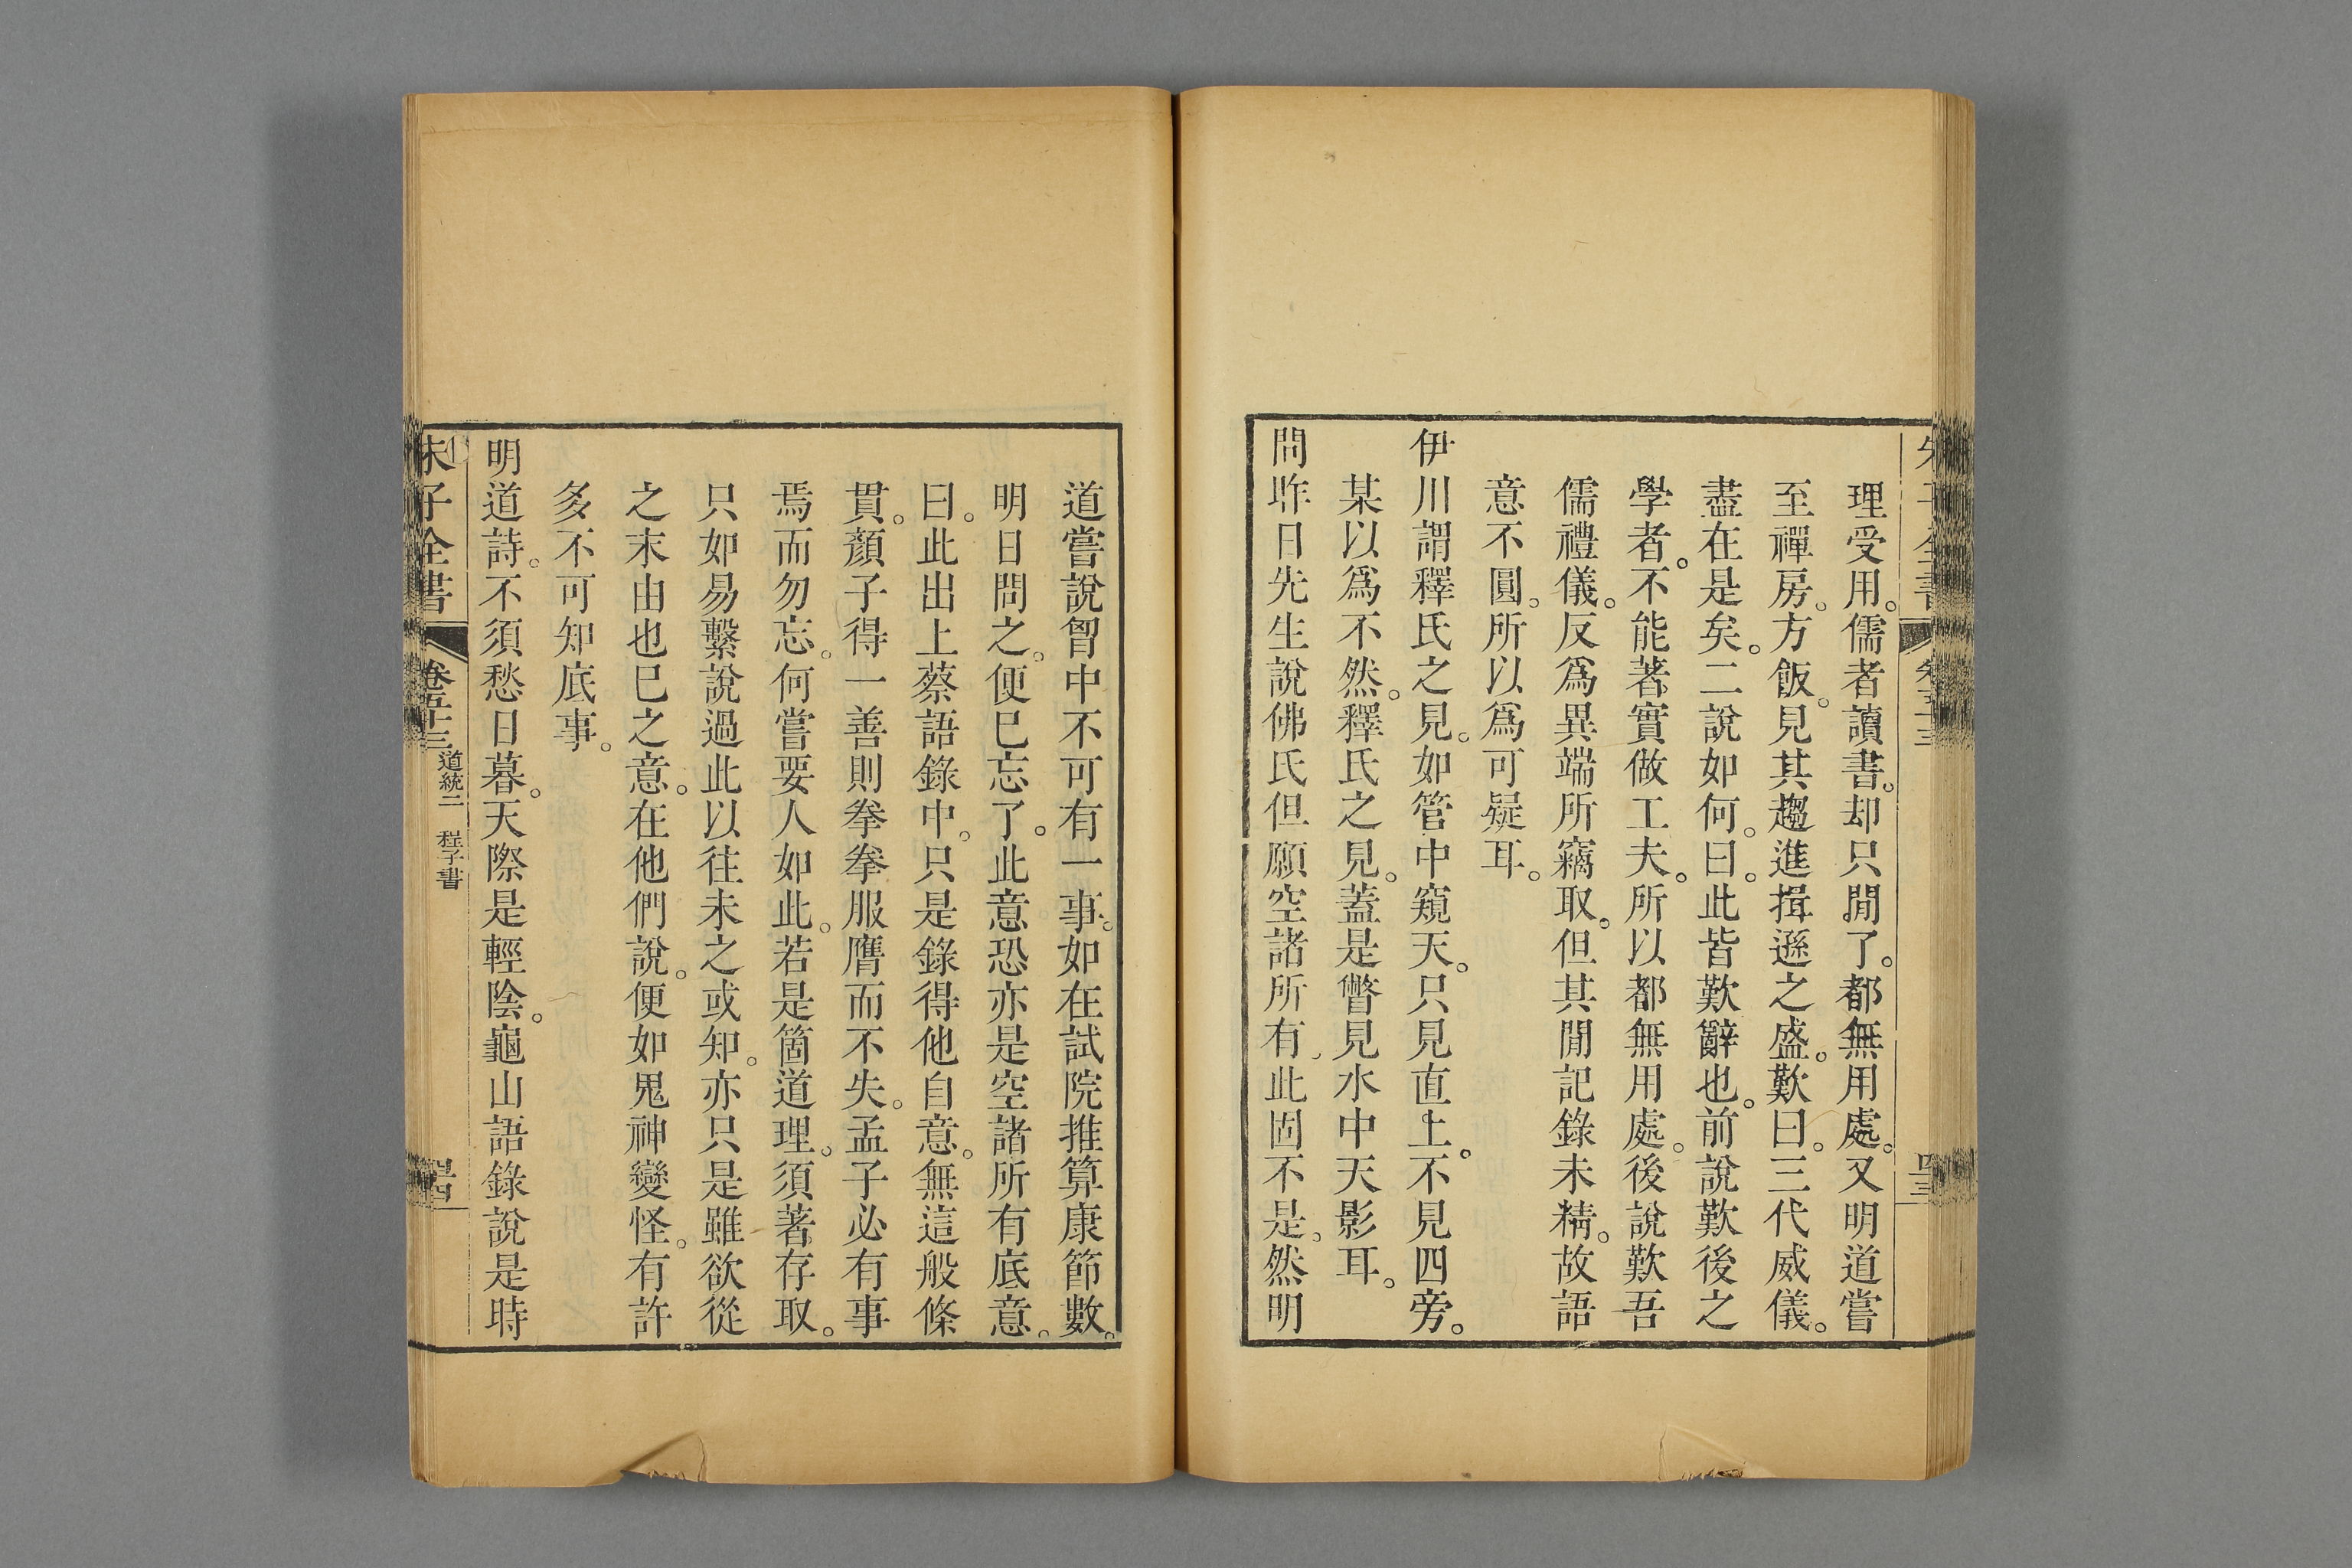 理受用。儒者讀書。却只閒了。都無用處。又明道嘗
至禪房。方飯。見其趨進揖遜之盛。歎曰。三代威儀。
盡在是矣。二說如何。曰。此皆歎辭也。前說歎後之
學者。不能著實做工夫。所以都無用處。後說歎吾
儒禮儀。反爲異端所竊取。但其閒記錄未精。故語
意不圓。所以爲可疑耳。
伊川謂釋氏之見。如管中窺天。只見直上。不見四旁。
某以爲不然。釋氏之見。蓋是瞥見水中天影耳。
問昨日先生說佛氏但願空諸所有。此固不是。然明
道嘗說胷中不可有一事。如在試院推算康節數。
明日問之。便巳忘了。此意恐亦是空諸所有底意。
曰。此出上蔡語錄中。只是錄得他自意。無這般條
貫。顏子得一善則拳拳服膺而不失。孟子必有事
焉而勿忘。何嘗要人如此。若是箇道理。須著存取。
只如易繫說過此以往未之或知。亦只是雖欲從
之末由也巳之意。在他們說。便如鬼神變怪。有許
多不可知底事。
明道詩。不須愁日暮。天際是輕陰。龜山語錄說是時
朱子全書 卷五十三 道統二 程子書 四十四